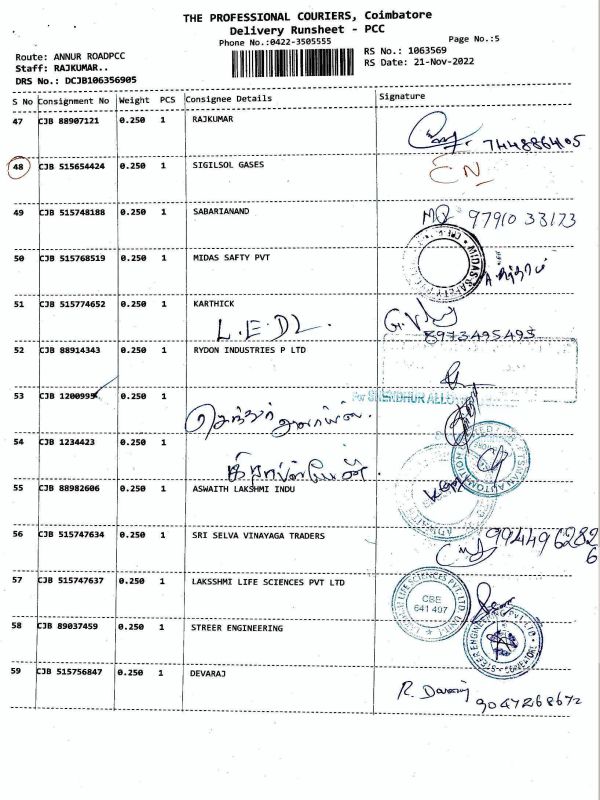 THE PROFESSIONAL COURIERS, Coimbatore
Delivery Runsheet - PCC
Phone No.:0422-3505555
Page No.:5
Route: ANNUR ROADPCC
RS No.: 1063569
Staff: RAJKUMAR..
RS Date: 21-Nov-2022
DRS No.: DCJB106356905
S No Consignment No Weight PCS Consignee Details Signature
47 CJB 88907121 0.250 1 RAJKUMAR
48 CJB 515654424 0.250 1 SIGILSOL GASES
49 CJB 515748188 0.250 1 SABARIANAND 97910 33173
50 CJB 515768519 0.250 1 MIDAS SAFTY PVT
51 CJB 515774652 0.250 1 KARTHICK
L.E.DL. 8973495495
52 CJB 88914343 0.250 1 RYDON INDUSTRIES P LTD
53 CJB 1200995 0.250 1
54 CJB 1234423 0.250 1
55 CJB 88982606 0.250 1 ASWAITH LAKSHMI INDU
56 CJB 515747634 0.250 1 SRI SELVA VINAYAGA TRADERS 9944962826
57 CJB 515747637 0.250 1 LAKSSHMI LIFE SCIENCES PVT LTD
CBE
641 407
58 CJB 89037459 0.250 1 STREER ENGINEERING
59 CJB 515756847 0.250 1 DEVARAJ
9047268672